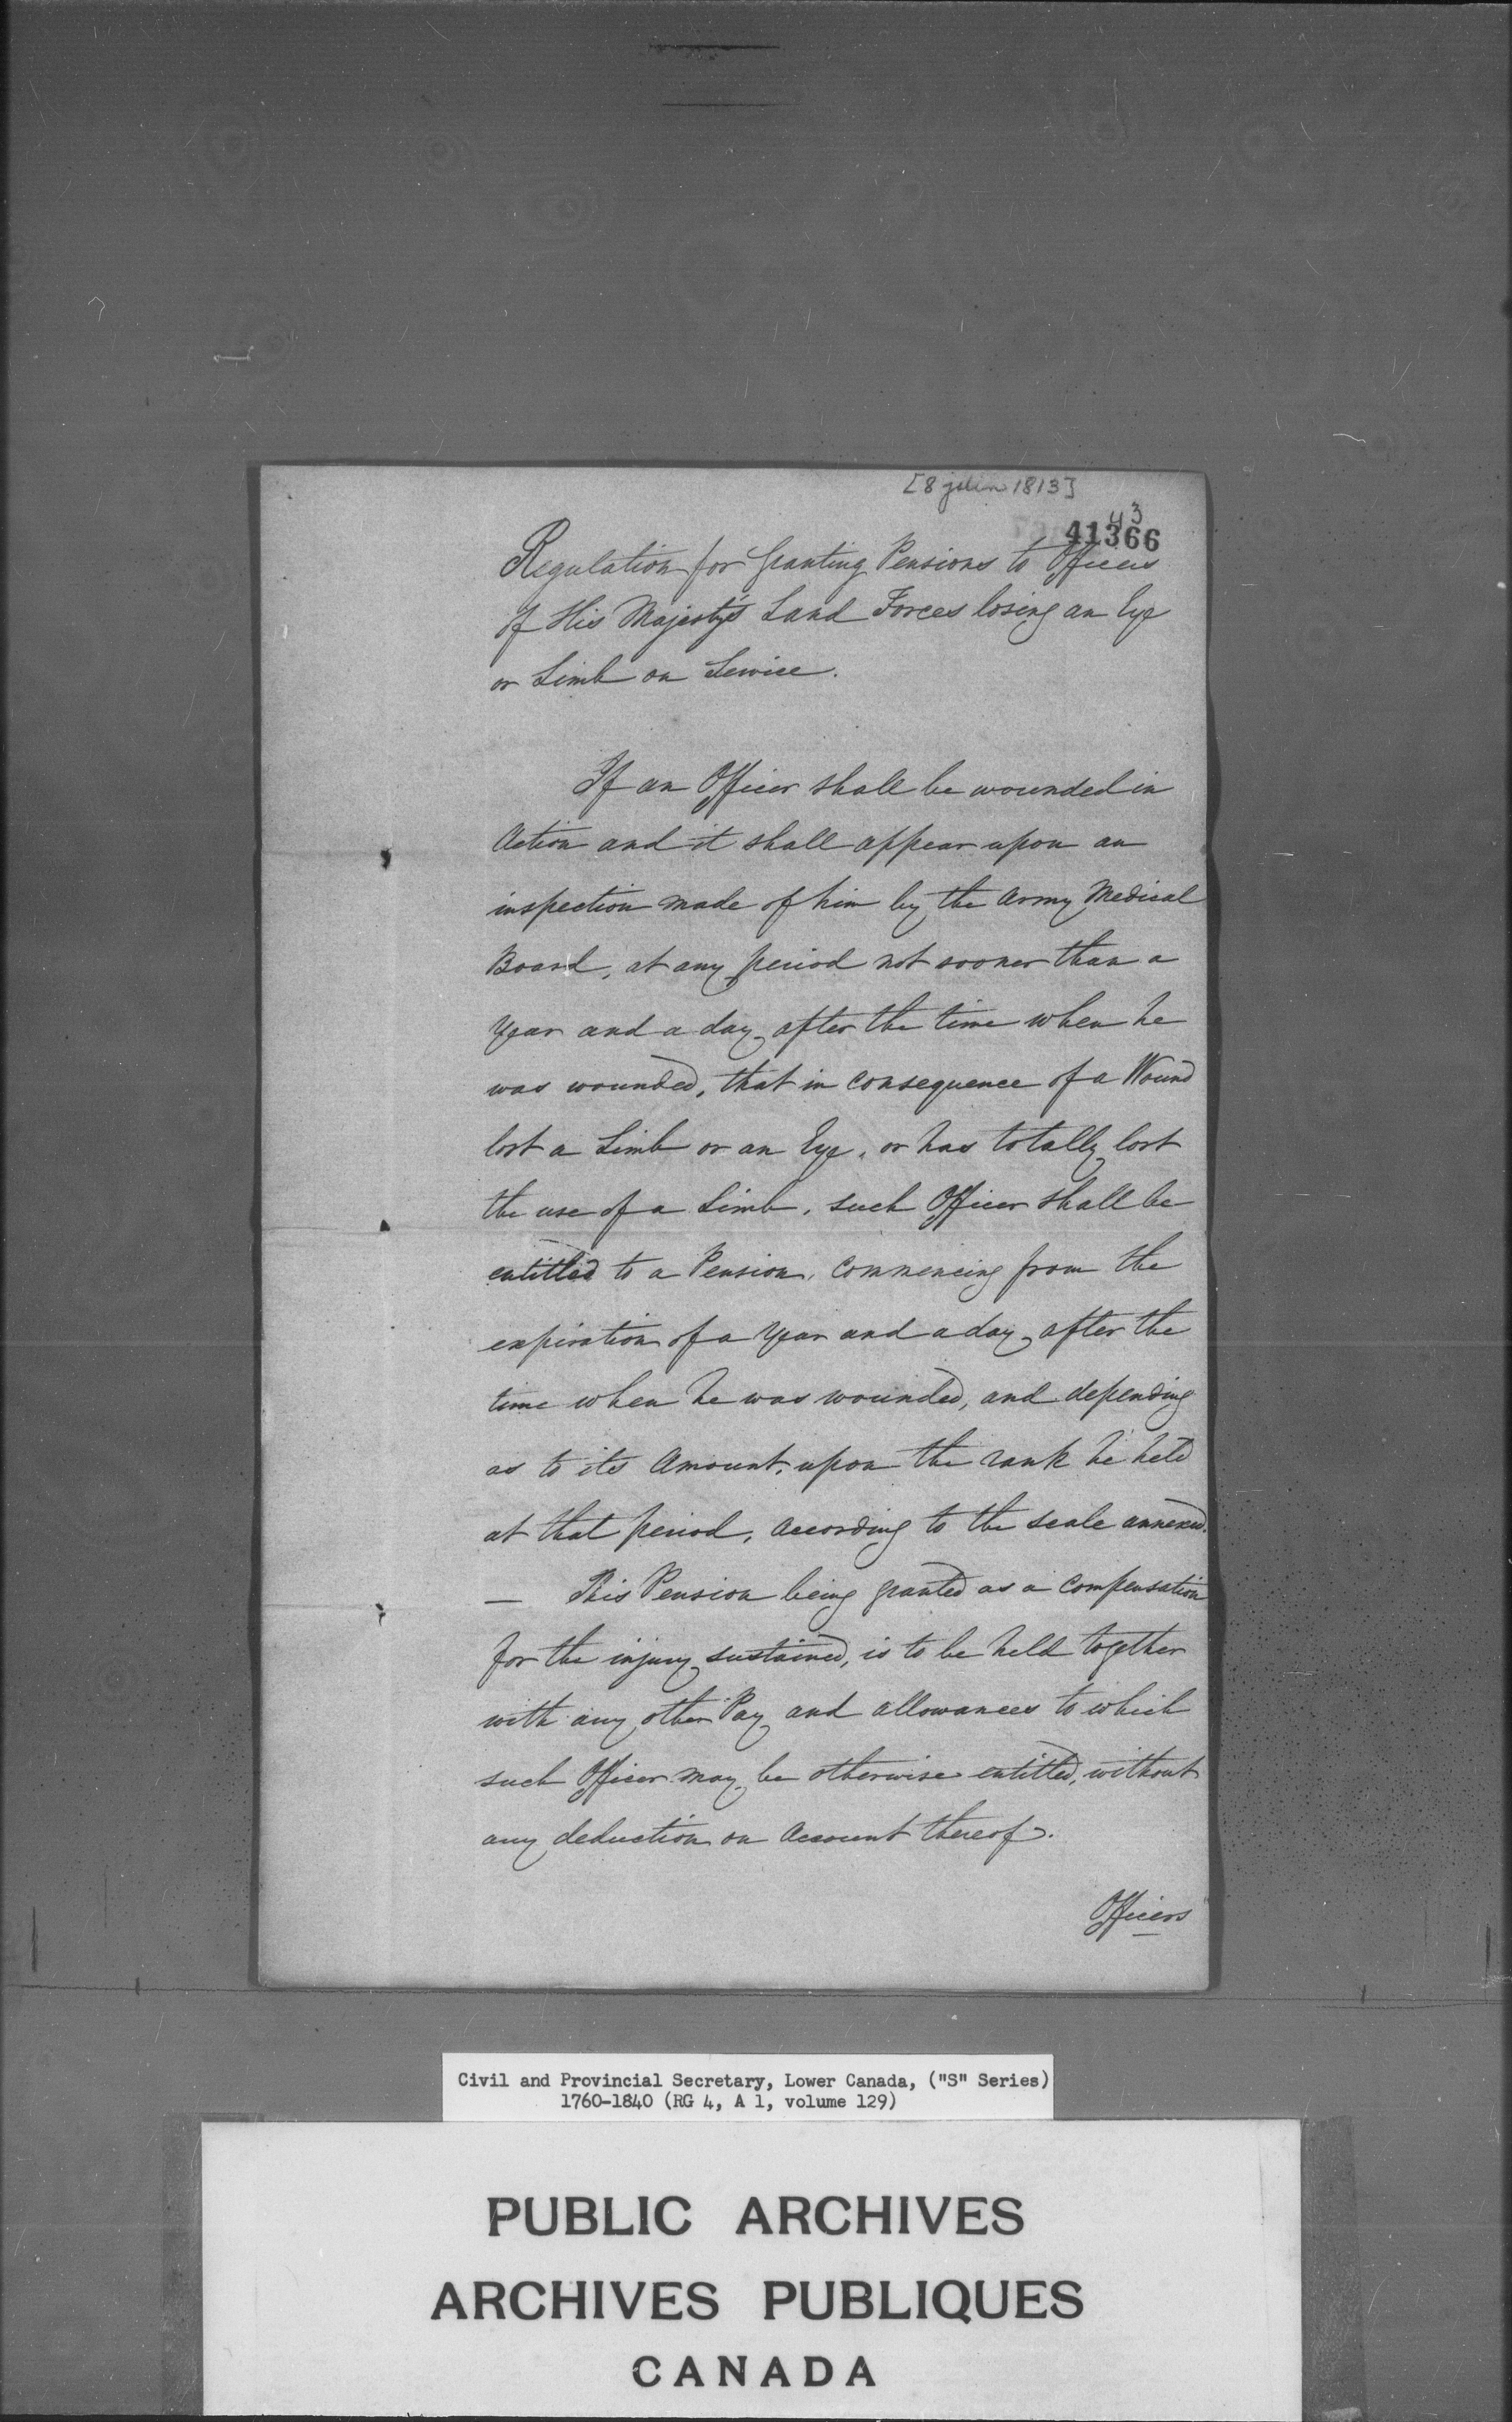 [8 juin 1813]
43
41366
Regulation for Granting Pensions to Officers
of His Majesty's Land Forces losing an Eye
or Limb on Service.
If an Officer shall be wounded in
Action and it shall appear upon an
inspection made of him by the Army Medical
Board, at any period not sooner than a
Year and a day after the time when he
was wounded, that in consequence of a Wound
lost a Limb or an Eye, or has totally lost
the use of a Limb, such Officer shall be
entitled to a Pension, commencing from the
expiration of a Year and a day after the
time when he was wounded, and depending
as to its Amount, upon the rank he held
at that period, according to the scale annexed.
— This Pension being granted as a Compensation
for the injury sustained, is to be held together
with any other Pay and allowances to which
such Officer may be otherwise entitled, without
any deduction on Account thereof.
Officers
Civil and Provincial Secretary, Lower Canada, ("S" Series)
1760-1840 (RG 4, A 1, volume 129)
PUBLIC ARCHIVES
ARCHIVES PUBLIQUES
CANADA